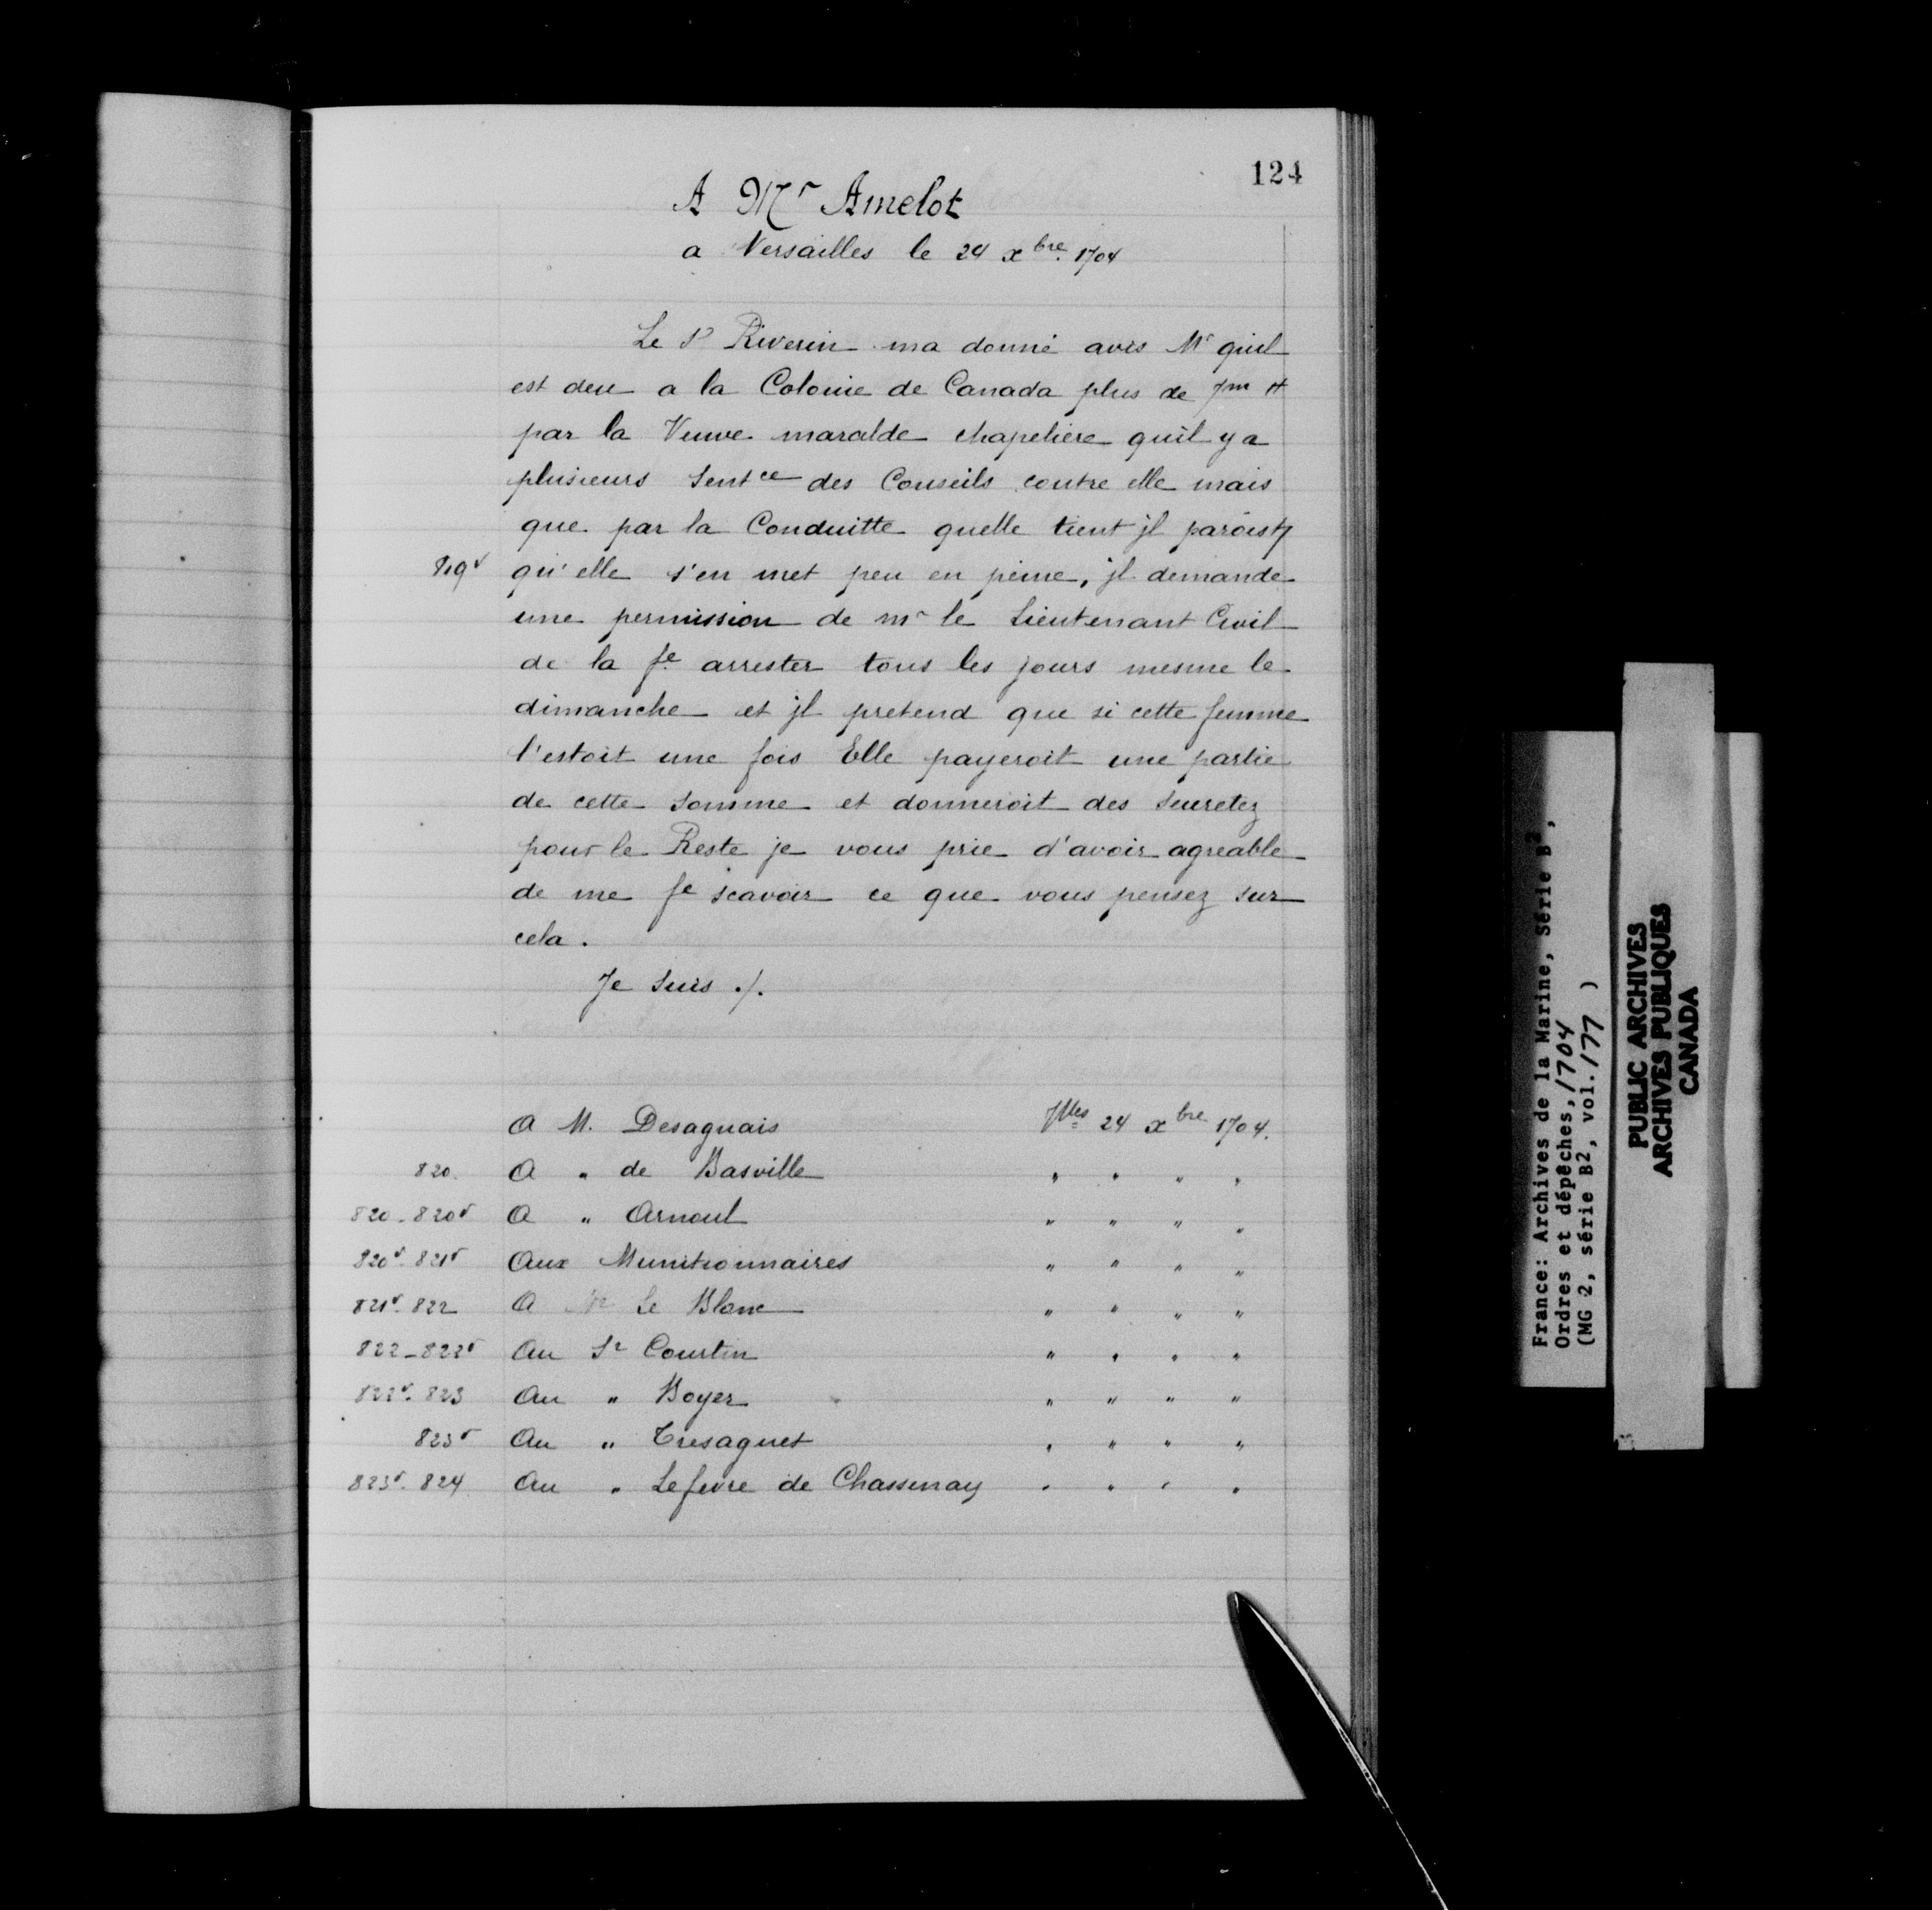 124
A Mr Amelot
a Versailles le 24 xbre 1704
Le Sr Riverin ma donné avis Mr quil
est deu a la Colonie de Canada plus de 7m ₶
par la Veuve maralde chapeliere quil y a
plusieurs Sentce des Conseils contre elle mais
que par la Conduitte quelle tient jl paroist
819v qu'elle s'en met peu en peine, jl demande
une permission de mr le Lieutenant Civil
de la fe arrester tous les jours mesme le
dimanche et jl pretend que si cette femme
l'estoit une fois Elle payeroit une partie
de cette somme et donneroit des seuretez
pour le Reste je vous prie d'avoir agreable
de me fe scavoir ce que vous pensez sur
cela.
Je suis ./.
A M. Desaguais Vlles 24 xbre 1704.
820. A " de Basville " " " "
820-820v A " Arnoul " " " "
820v-821v Aux Munitionnaires " " " "
821v-822 A Mr Le Blanc " " " "
822-822v Au Sr Courtin " " " "
822v-823 Au " Boyer " " " "
823v Au " Tresaguet " " " "
823v-824 Au " Lefevre de Chassenay " " " "
France: Archives de la Marine, Série B2,
Ordres et dépêches, 1704
(MG 2, série B2, vol. 177 )
PUBLIC ARCHIVES
ARCHIVES PUBLIQUES
CANADA